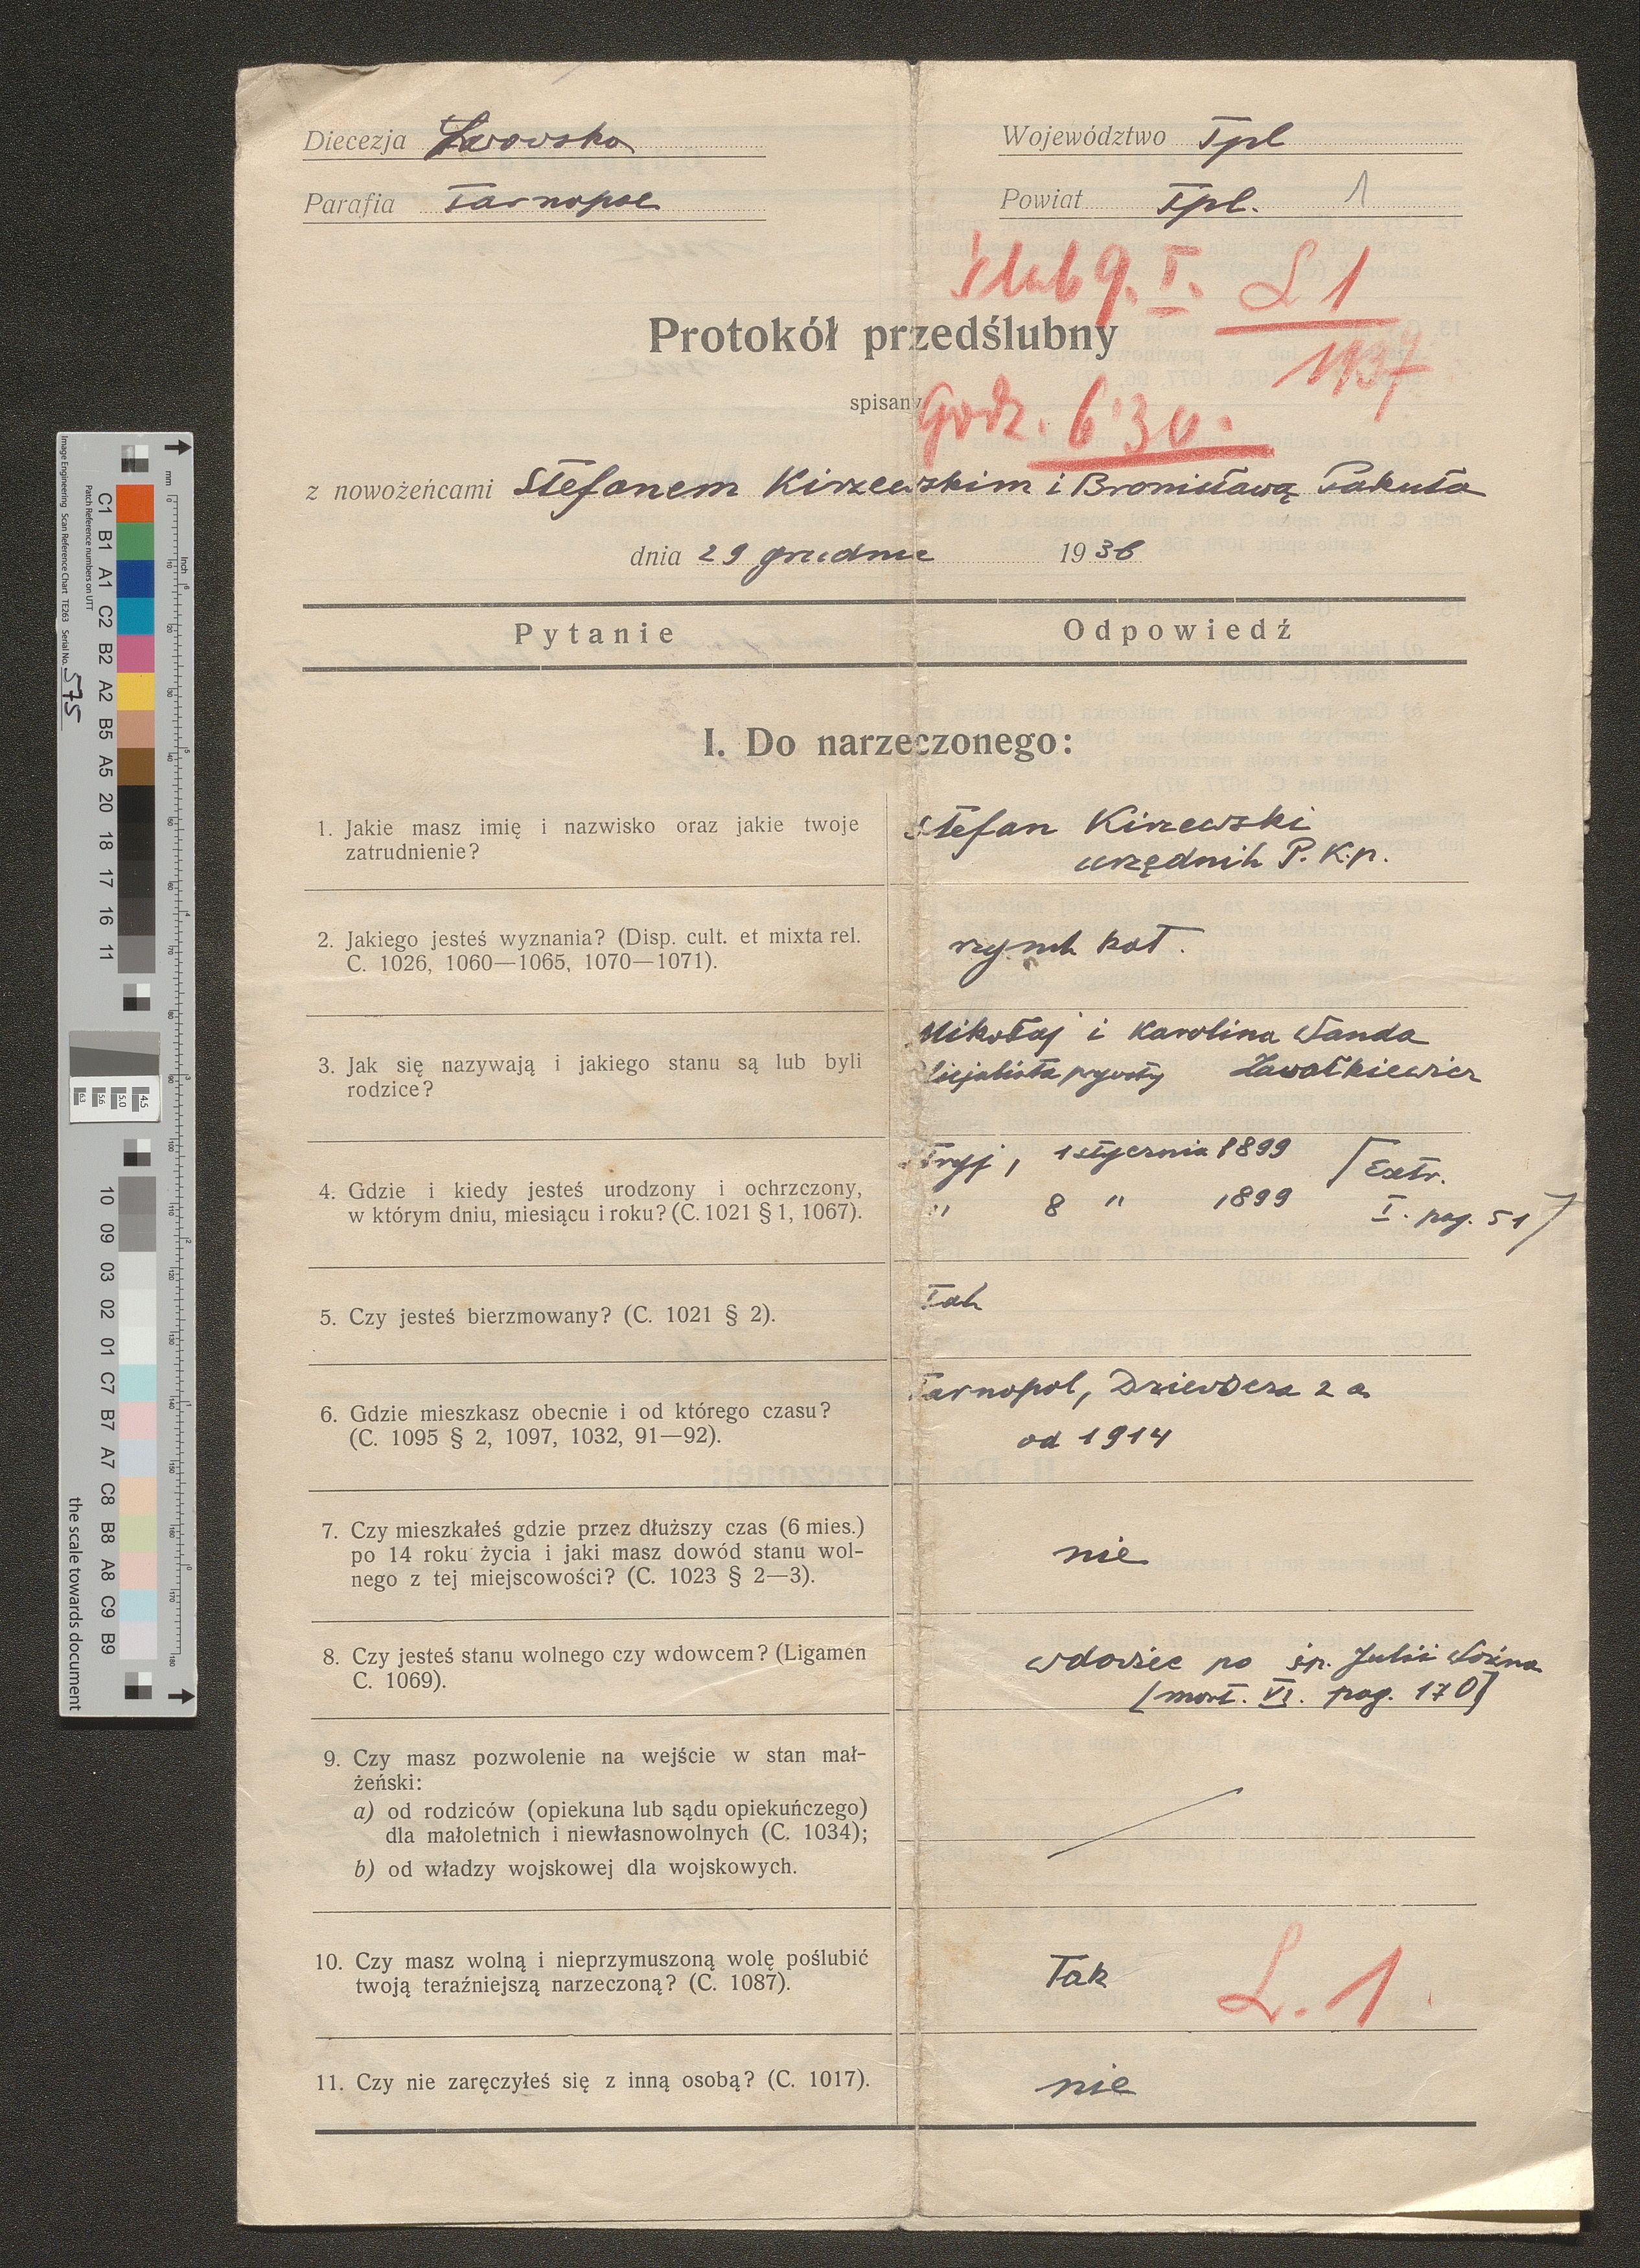 Diecezja Lwowska
Województwo Tpl
Parafia Tarnopol
Powiat Tpl. 1
Ślub 9. I. L 1
1937
Protokół przedślubny
spisany
Godz. 6'30.
z nowożeńcami Stefanem Kirzewskim i Bronisławą Pakuła
dnia 29 grudnia 1936
Pytanie
Odpowiedź
I. Do narzeczonego:
1. Jakie masz imię i nazwisko oraz jakie twoje
zatrudnienie?
Stefan Kirzewski
urzędnik P.K.p.
2. Jakiego jesteś wyznania? (Disp. cult. et mixta rel.
C. 1026, 1060—1065, 1070—1071).
rzymk kat.
3. Jak się nazywają i jakiego stanu są lub byli
rodzice?
Mikołaj i Karolina Wanda
oficjalista prywatny Zawałkiewicz
4. Gdzie i kiedy jesteś urodzony i ochrzczony,
w którym dniu, miesiącu i roku? (C. 1021 § 1, 1067).
Stryj, 1 stycznia 1899 [Extr.
" 8 " 1899 I. pag. 51]
5. Czy jesteś bierzmowany? (C. 1021 § 2).
Tak
6. Gdzie mieszkasz obecnie i od którego czasu?
(C. 1095 § 2, 1097, 1032, 91—92).
Tarnopol, 2 a
od 1914
7. Czy mieszkałeś gdzie przez dłuższy czas (6 mies.)
po 14 roku życia i jaki masz dowód stanu wol-
nego z tej miejscowości? (C. 1023 § 2—3).
nie
8. Czy jesteś stanu wolnego czy wdowcem? (Ligamen
C. 1069).
wdowiec po śp. Julii Woźna
[mort. VI. pag. 170]
9. Czy masz pozwolenie na wejście w stan mał-
żeński:
a) od rodziców (opiekuna lub sądu opiekuńczego)
dla małoletnich i niewłasnowolnych (C. 1034);
b) od władzy wojskowej dla wojskowych.
10. Czy masz wolną i nieprzymuszoną wolę poślubić
twoją teraźniejszą narzeczoną? (C. 1087).
Tak
L. 1.
11. Czy nie zaręczyłeś się z inną osobą? (C. 1017).
nie
Image Engineering Scan Reference Chart TE263 Serial No. 575
Patch Reference numbers on UTT
C1 B1 A1 C2 B2 A2 B5 A5 20 18 17 16 11
10 09 03 02 01 C7 B7 A7 C8 B8 A8 C9 B9
the scale towards document